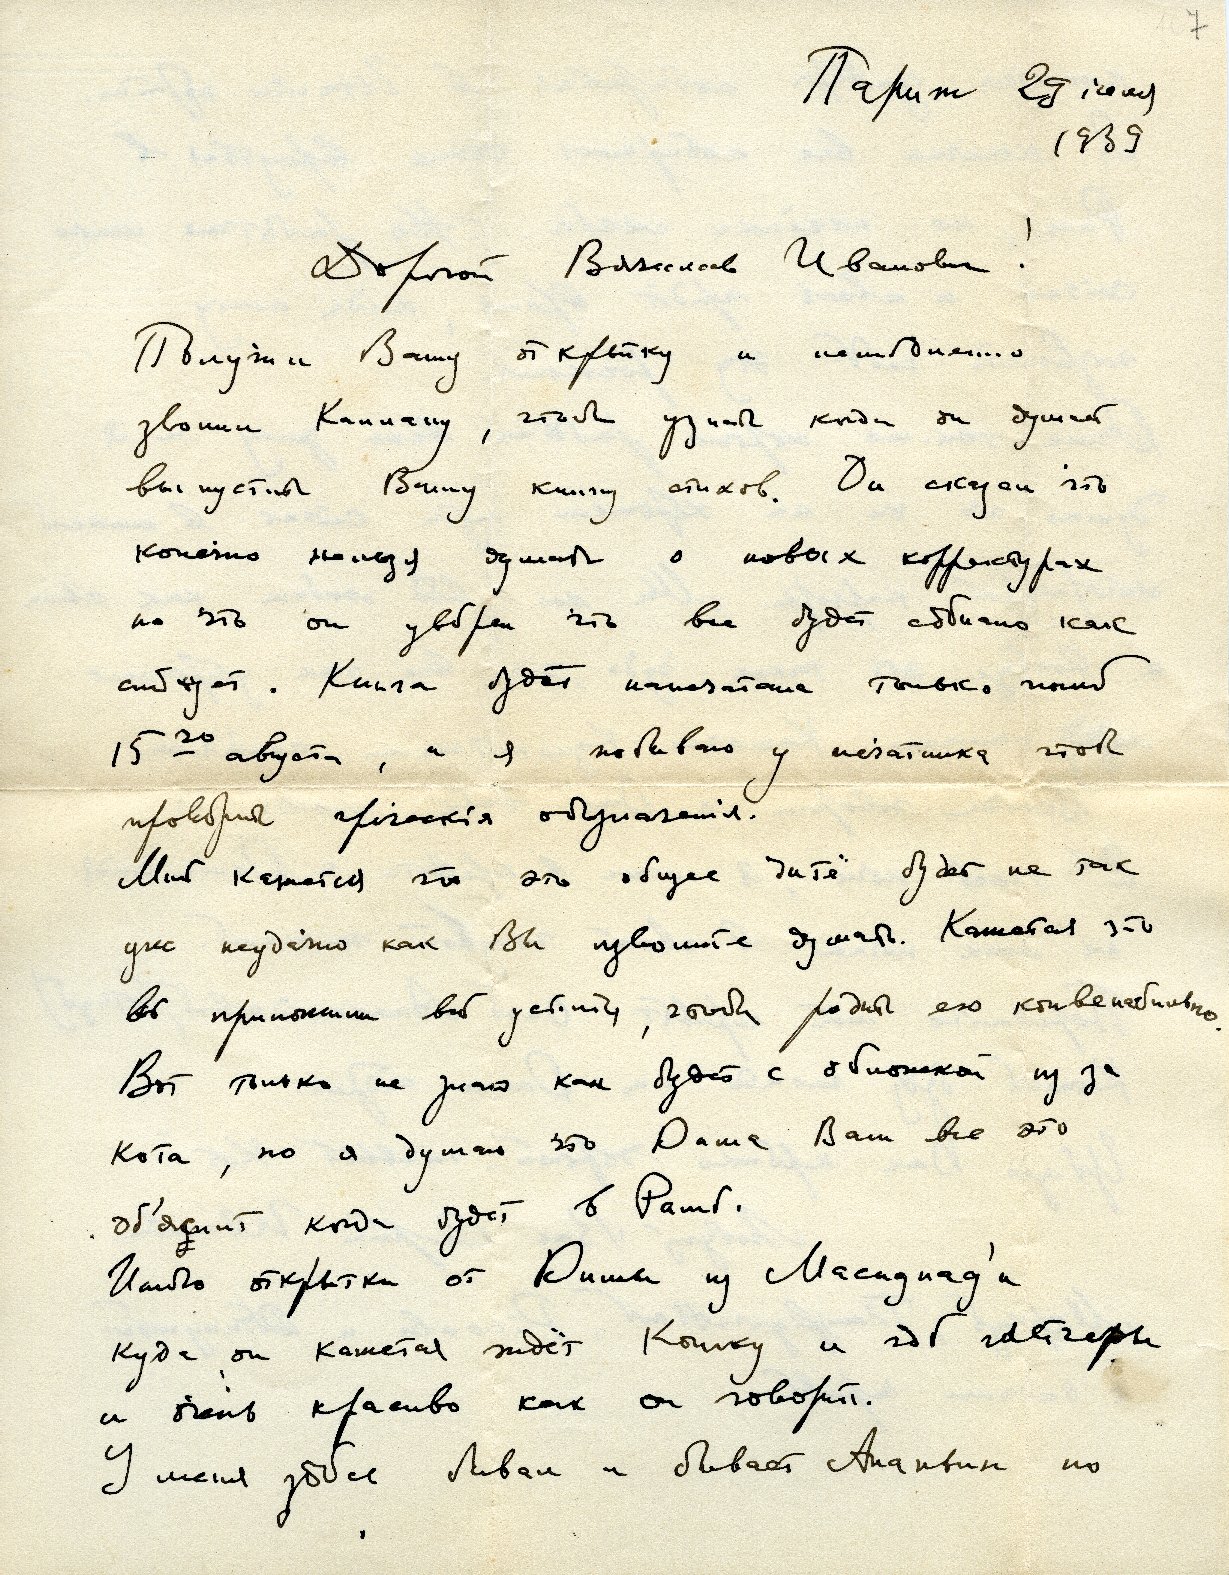 7
Париж 29 июля
1939
Дорогой Вячеслав Иванович!
Получил Вашу открытку и немѣдленно
звонил Каплану, чтобы узнать когда он думает
выпустить Вашу книгу стихов. Он сказал что
конечно нельзя думать о новых корректурах
но что он увѣрен что все будет сдѣлано как
слѣдует. Книга будет напечатана только послѣ
15го августа, и я побываю у печатника чтобы
провѣрить греческія обозначенія.
Мнѣ кажется что это общее дитё будет не так
уже неудачно как Вы изволите думать. Кажется что
всѣ приложили всѣ усилия, чтобы родить его
Вот только не знаю как будет с обложкой из за
кота, но я думаю что Дима Вам все это
об'яснит когда будет в Римѣ.
Имѣю открытки от Димы из
куда он кажется ждёт Кошку и гдѣ
и очень красиво как он говорит.
У меня здѣсь бывал и бывает Ананьин по